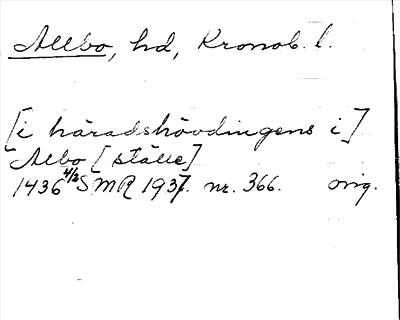 Allbo, hd, Kronob. l.
[i häradshövdingens i]
Albo [ställe]
1436 4/2 SMR 1937. nr. 366. orig.